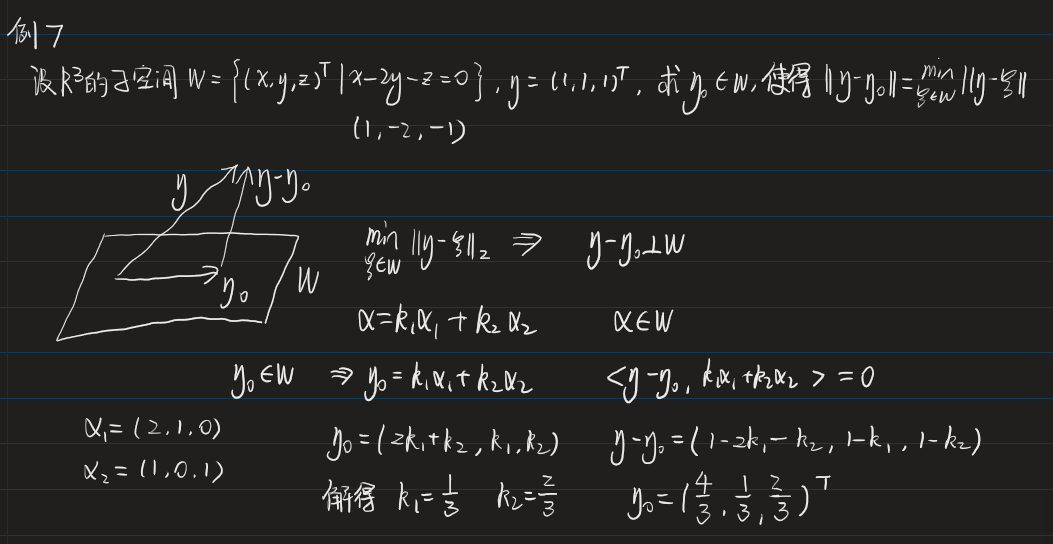 例7
设R³的子空间 W = {(x,y,z)ᵀ | x-2y-z=0}, y = (1,1,1)ᵀ, 求 y₀∈W, 使得 ||y-y₀|| = min_{ξ∈W} ||y-ξ||
(1, -2, -1)
y y-y₀
y₀ W
min_{ξ∈W} ||y-ξ||₂ ⇒ y-y₀⊥W
α=k₁α₁+k₂α₂ α∈W
y₀∈W ⇒ y₀=k₁α₁+k₂α₂ <y-y₀, k₁α₁+k₂α₂> = 0
α₁=(2,1,0) y₀=(2k₁+k₂, k₁, k₂) y-y₀=(1-2k₁-k₂, 1-k₁, 1-k₂)
α₂=(1,0,1)
解得 k₁=1/3 k₂=2/3 y₀=(4/3, 1/3, 2/3)ᵀ